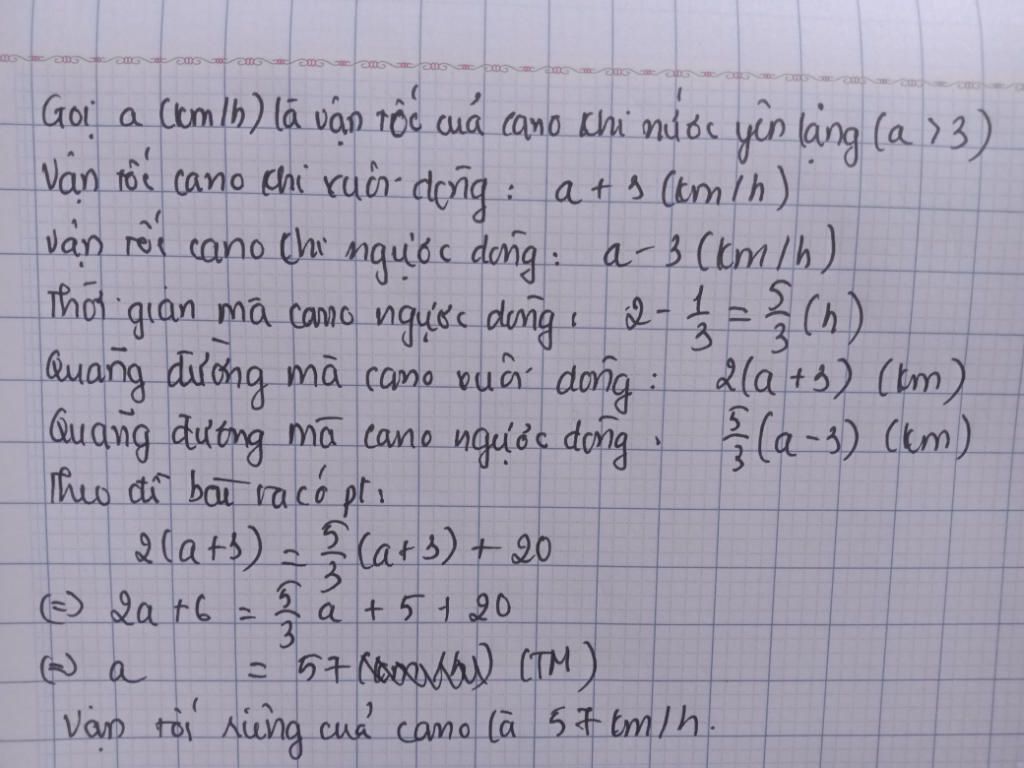 Gọi a (km/h) là vận tốc cuả cano khi nước yên lặng (a > 3)
Vận tốc cano khi xuôi dòng: a + 3 (km/h)
Vận tốc cano khi ngược dòng: a - 3 (km/h)
Thời gian mà cano ngược dòng: 2 - 1/3 = 5/3 (h)
Quãng đường mà cano xuôi dòng: 2(a + 3) (km)
Quãng đường mà cano ngược dòng: 5/3 (a - 3) (km)
Theo đề bài ra có pt:
2(a+3) = 5/3 (a+3) + 20
(=) 2a + 6 = 5/3 a + 5 + 20
(=) a = 57 (TM)
Vận tốc riêng cuả cano là 57 km/h.